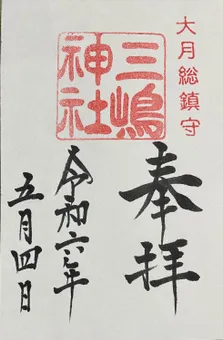 大月総鎮守
奉拝
三嶋
神社
令和六年
五月四日